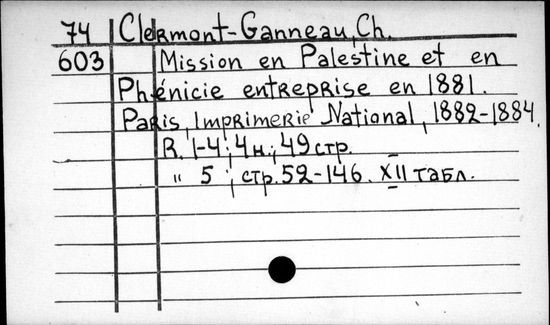 74 Clermont-Ganneau, Ch.
603 Mission en Palestine et en
Phénicie entreprise en 1881.
Paris, Imprimerie National, 1882-1884.
R. 1-4; 4н.; 49 стр.
" 5; стр. 52-146. XII табл.